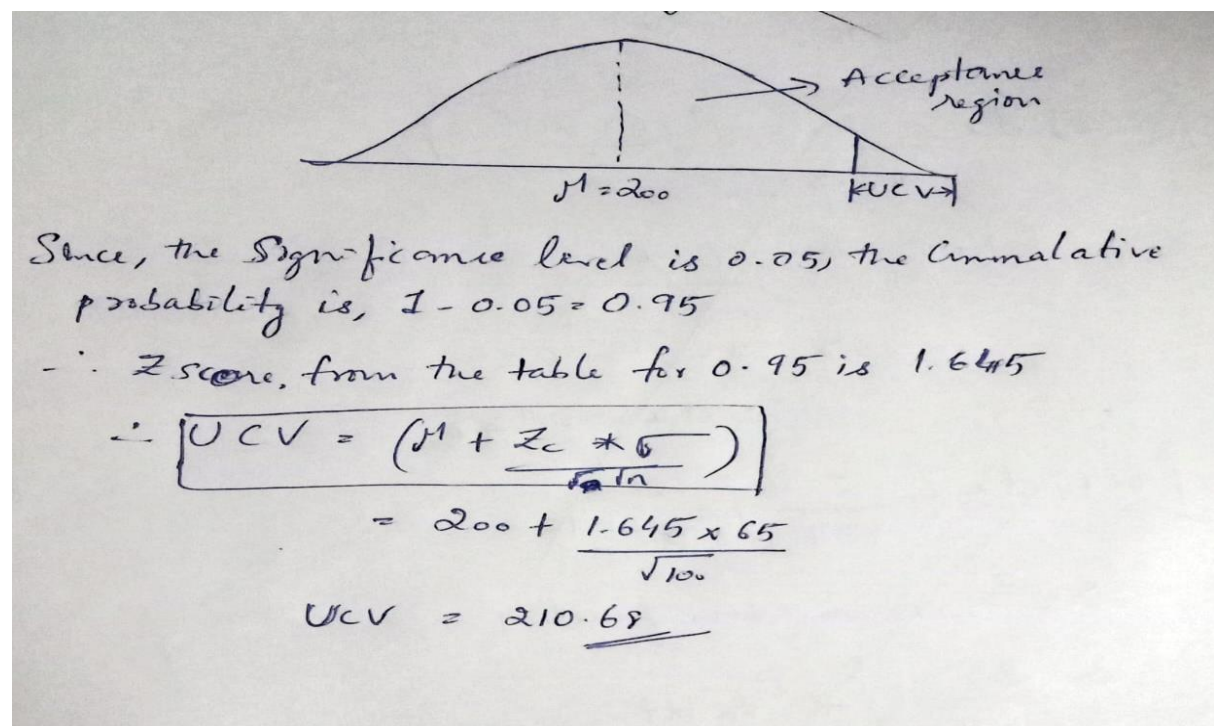 Acceptance
region
μ = 200
UCV
Since, the Significance level is 0.05, the Cummalative
probability is, 1 - 0.05 = 0.95
∴ Z score, from the table for 0.95 is 1.645
∴ UCV = (μ + Zc * σ / √n)
= 200 + 1.645 x 65 / √100
UCV = 210.68